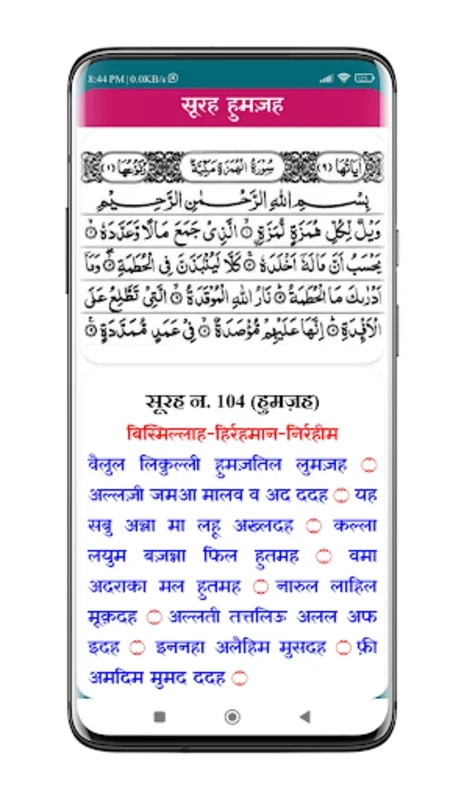 8:44 PM | 0.0KB/s
सूरह हुमज़ह
اٰيَاتُهَا (٩) سُوْرَةُ الْهُمَزَةِ مَكِّيَّةٌ رُكُوْعُهَا (١)
بِسْمِ اللهِ الرَّحْمٰنِ الرَّحِيْمِ
وَيْلٌ لِّكُلِّ هُمَزَةٍ لُّمَزَةِ ۙ الَّذِىْ جَمَعَ مَالًا وَّعَدَّدَهٗ ۙ
يَحْسَبُ اَنَّ مَالَهٗۤ اَخْلَدَهٗ ۚ كَلَّا لَيُنْۢبَذَنَّ فِى الْحُطَمَةِ ۖ وَمَاۤ
اَدْرٰىكَ مَا الْحُطَمَةُ ؕ نَارُ اللهِ الْمُوْقَدَةُ ۙ الَّتِىْ تَطَّلِعُ عَلَى
الْاَفْـِٕدَةِ ؕ اِنَّهَا عَلَيْهِمْ مُّؤْصَدَةٌ ۙ فِىْ عَمَدٍ مُّمَدَّدَةٍ
सूरह न. 104 (हुमज़ह)
बिस्मिल्लाह-हिर्रहमान-निर्रहीम
वैलुल लिकुल्ली हुमज़तिल लुमज़ह
अल्लज़ी जमआ मालव व अद ददह यह
सबु अन्ना मा लहू अख्लदह कल्ला
लयुम बज़न्ना फिल हुतमह वमा
अदराका मल हुतमह नारुल लाहिल
मूक़दह अल्लती तत्तलिऊ अलल अफ
इदह इननहा अलैहिम मुसदह फ़ी
अमदिम मुमद ददह